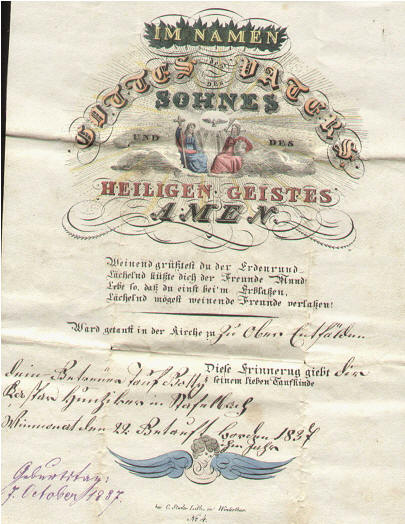 IM NAMEN
GOTTES des VATERS
DES
SOHNES
UND DES
HEILIGEN GEISTES
AMEN.
Weinend grüßtest du der Erdenrund
Lächelnd küßte dich der Freunde Mund!
Lebe so, daß du einst bei'm Erblaßen,
Lächelnd mögest weinende Freunde verlaßen!
Ward getauft in der Kirche zu Ober Entfälden
Diese Erinnerug giebt dir
dein Tauf
seinem lieben Taufkinde
Hunziker in Stafelbach
Weinmonat den 22. Betauft worden 1837
im Jahr
Geburtstag:
7. October 1837.
bei C. Studer Lith. in Winterthur.
No. 4.